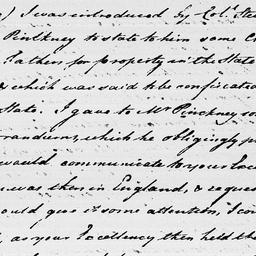 ) I was introduced by Col.
Pinkney to state to him some C
Father for property in the State
which was said to be confiscated
State. I gave to Mr Pinckney so
randum, which he obligingly p
would communicate to your
was then in England, & reques
ould give it some attention, I con
, as your Excellency then held the